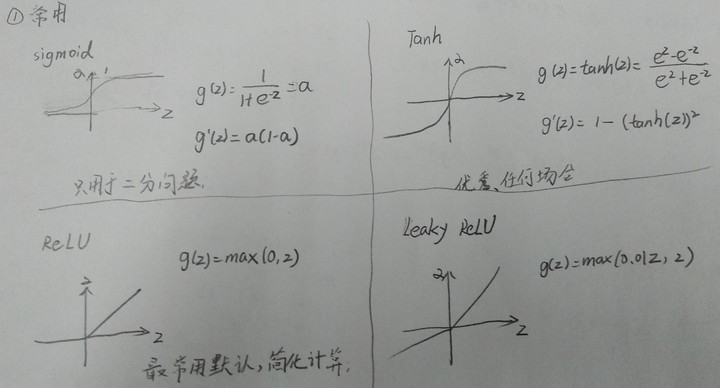 ① 常用
sigmoid
a
1
z
g(z)=1/(1+e^-z)=a
g'(z)=a(1-a)
只用于二分问题.
Tanh
a
z
g(z)=tanh(z)=(e^z-e^-z)/(e^z+e^-z)
g'(z)=1-(tanh(z))²
优秀、任何场合
ReLU
z
g(z)=max(0,z)
最常用默认,简化计算.
Leaky ReLU
a
z
g(z)=max(0.01z, z)